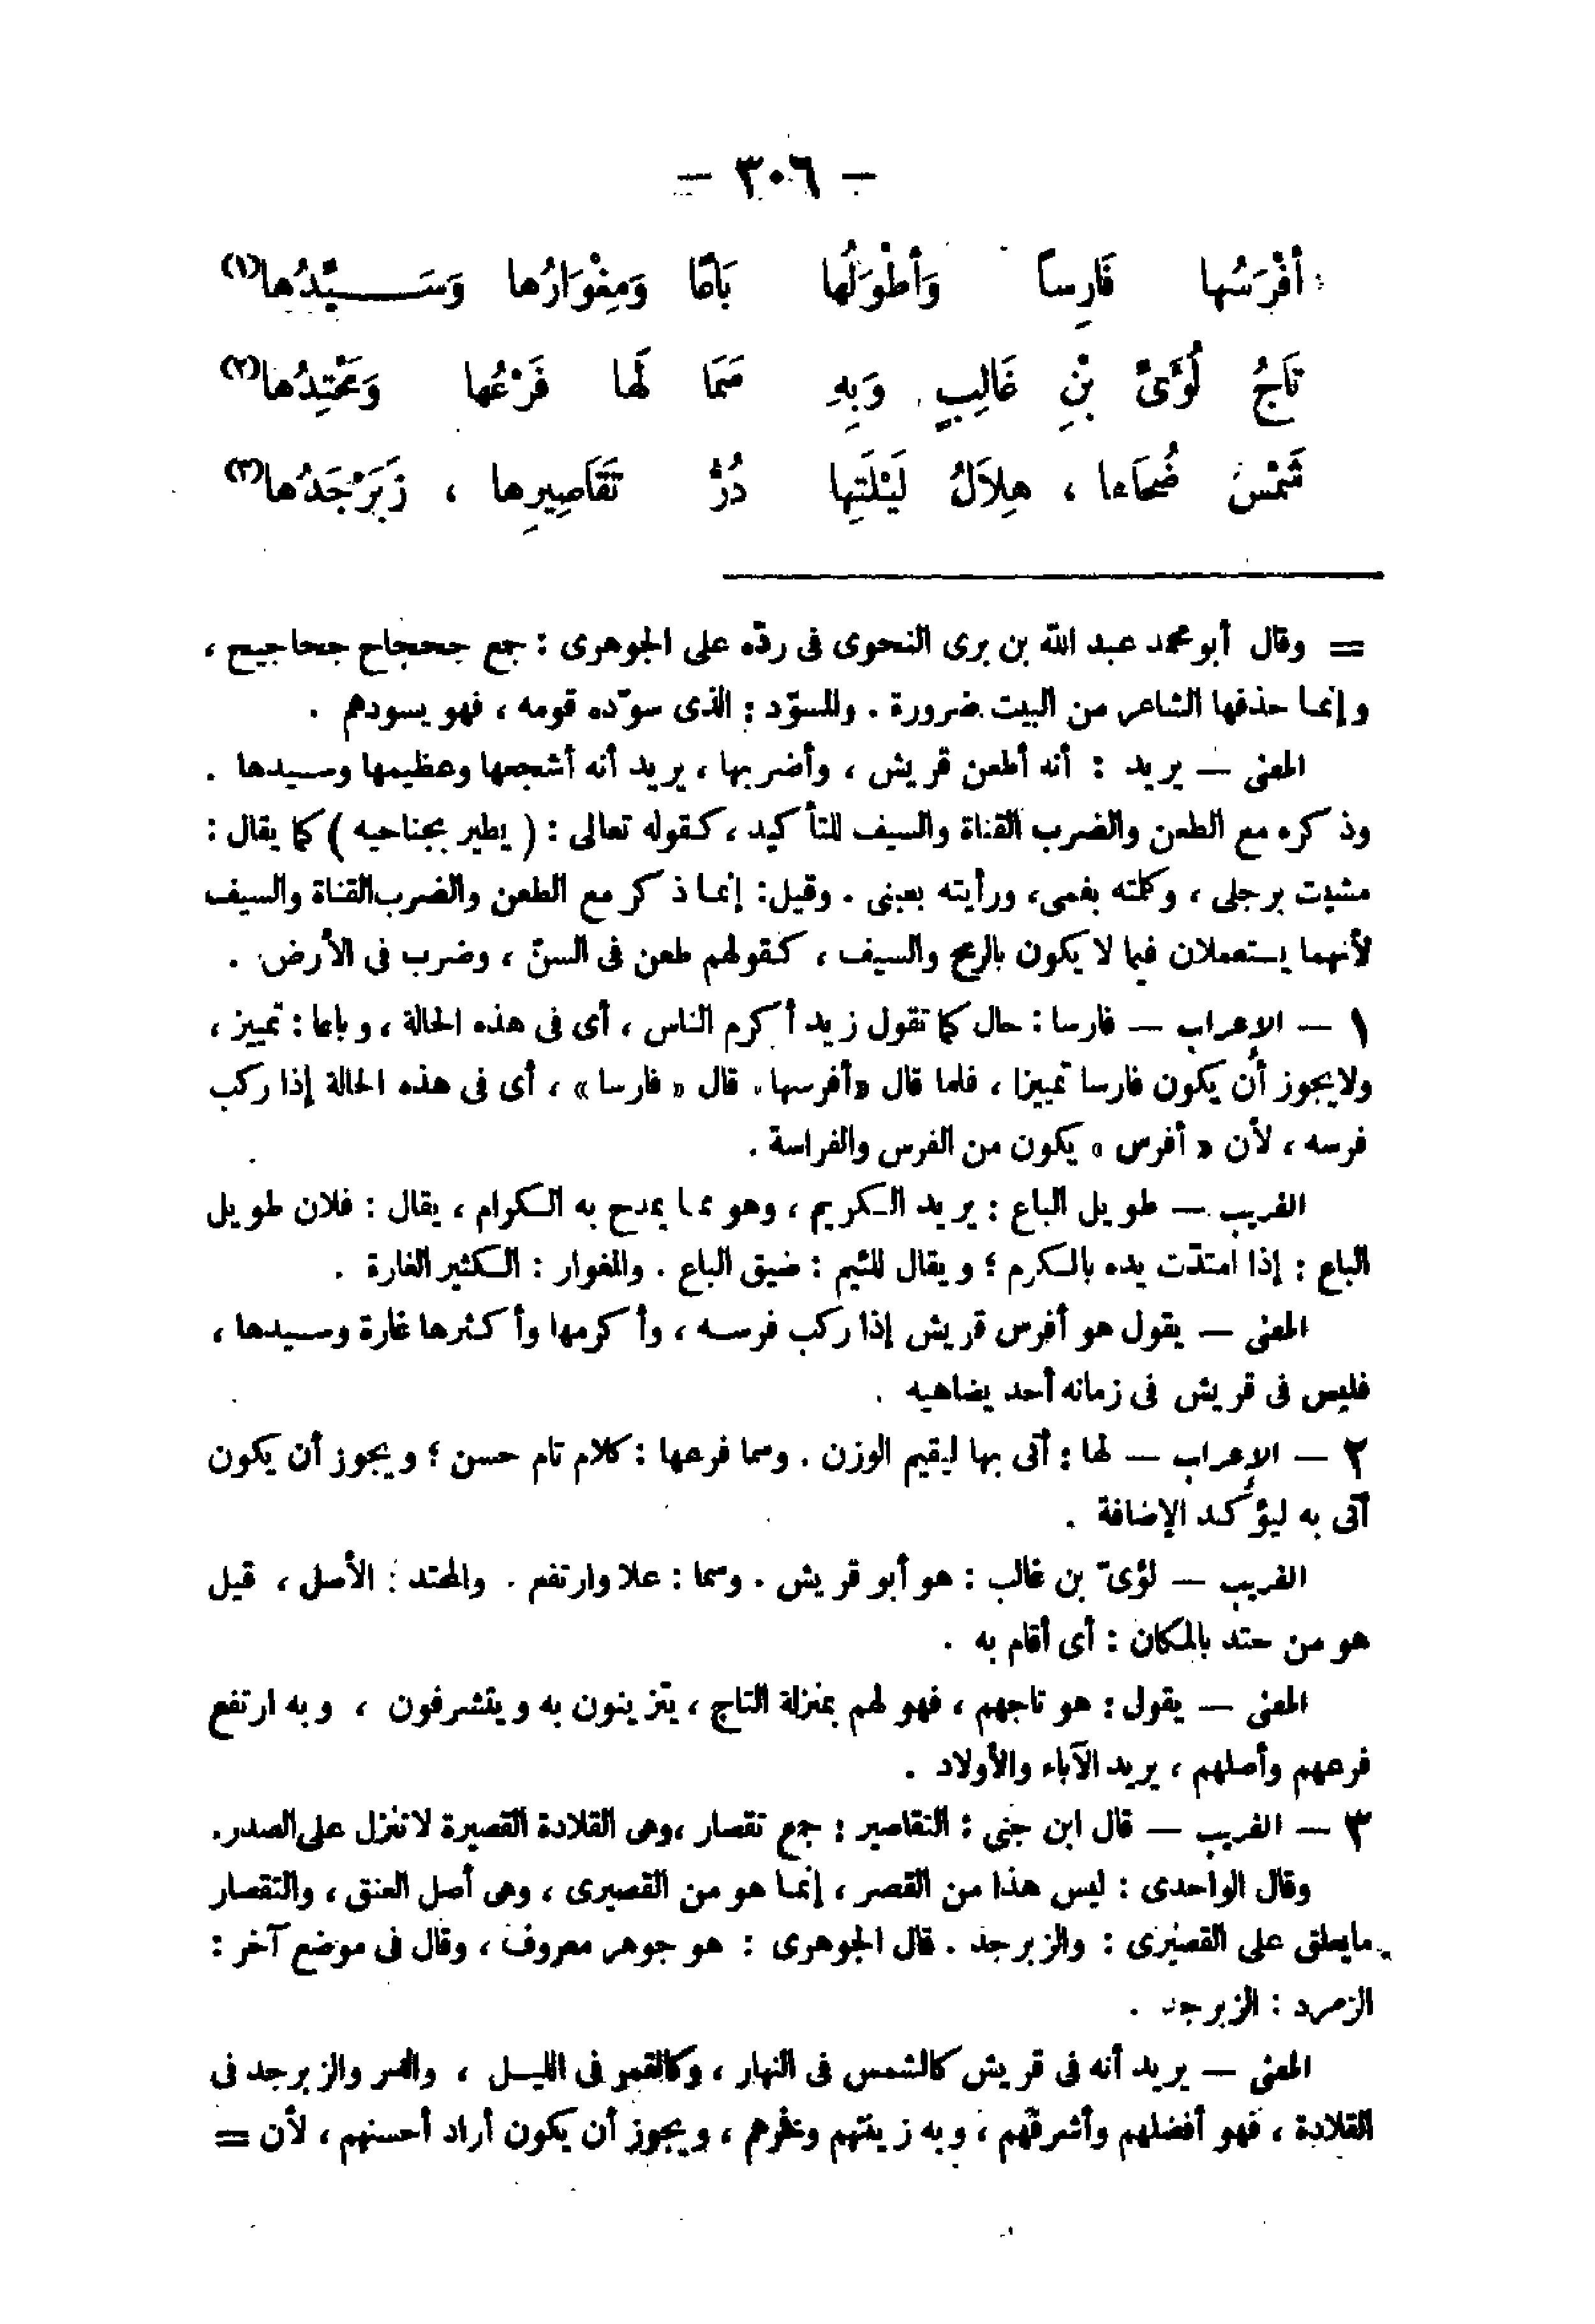 — ٣٠٦ —
أَفْرَسُها فَارِساً وَأَطْوَلُها بَاعًا وَمِغْوَارُها وَسَيِّدُها(١)
تَاجُ لُؤَىِّ بْنِ غَالِبٍ وَبِهِ سَمَا لَها فَرْعُها وَمَحْتِدُها(٢)
شَمْسُ ضُحَاها ، هِلاَلُ لَيْلَتِها دُرُّ تَقَاصِيرِها ، زَبَرْجَدُها(٣)
= وقال أبو محمد عبد الله بن برى النحوى فى ردّه على الجوهرى : جمع جحجاح جحاجيح ،
وإنما حذفها الشاعر من البيت ضرورة . والمسوّد : الذى سوّده قومه ، فهو يسودهم .
المعنى — يريد : أنه أطعن قريش ، وأضربها ، يريد أنه أشجعها وعظيمها وسيدها .
وذكره مع الطعن والضرب القناة والسيف للتأكيد ، كقوله تعالى : ( يطير بجناحيه ) كما يقال :
مشيت برجلى ، وكلمته بفمى ، ورأيته بعينى . وقيل : إنما ذكر مع الطعن والضرب القناة والسيف
لأنهما يستعملان فيما لا يكون بالرمح والسيف ، كقولهم طعن فى السنّ ، وضرب فى الأرض .
١ — الإعراب — فارسا : حال كما تقول زيد أكرم الناس ، أى فى هذه الحالة ، وباعا : تمييز ،
ولا يجوز أن يكون فارسا تمييزا ، فلما قال «أفرسها» قال « فارسا » ، أى فى هذه الحالة إذا ركب
فرسه ، لأن « أفرس » يكون من الفرس والفراسة .
الغريب — طويل الباع : يريد الكريم ، وهو مما يمدح به الكرام ، يقال : فلان طويل
الباع : إذا امتدّت يده بالكرم ؛ ويقال للئيم : ضيق الباع . والمغوار : الكثير الغارة .
المعنى — يقول هو أفرس قريش إذا ركب فرسه ، وأكرمها وأكثرها غارة وسيدها ،
فليس فى قريش فى زمانه أحد يضاهيه .
٢ — الإعراب — لها : أتى بها ليقيم الوزن . وسما فرعها : كلام تام حسن ؛ ويجوز أن يكون
أتى به ليؤكد الإضافة .
الغريب — لؤىّ بن غالب : هو أبو قريش . وسما : علا وارتفع . والمحتد : الأصل ، قيل
هو من حتد بالمكان : أى أقام به .
المعنى — يقول : هو تاجهم ، فهو لهم بمنزلة التاج ، يتزينون به ويتشرفون ، وبه ارتفع
فرعهم وأصلهم ، يريد الآباء والأولاد .
٣ — الغريب — قال ابن جنى : التقاصير : جمع تقصار ، وهى القلادة القصيرة لا تنزل على الصدر .
وقال الواحدى : ليس هذا من القصر ، إنما هو من القصيرى ، وهى أصل العنق ، والتقصار
ما يعلق على القصيرى : والزبرجد . قال الجوهرى : هو جوهر معروف ، وقال فى موضع آخر :
الزمرد : الزبرجد .
المعنى — يريد أنه فى قريش كالشمس فى النهار ، وكالقمر فى الليل ، والدر والزبرجد فى
القلادة ، فهو أفضلهم وأشرفهم ، وبه زينتهم وفخرهم ، ويجوز أن يكون أراد أحسنهم ، لأن =